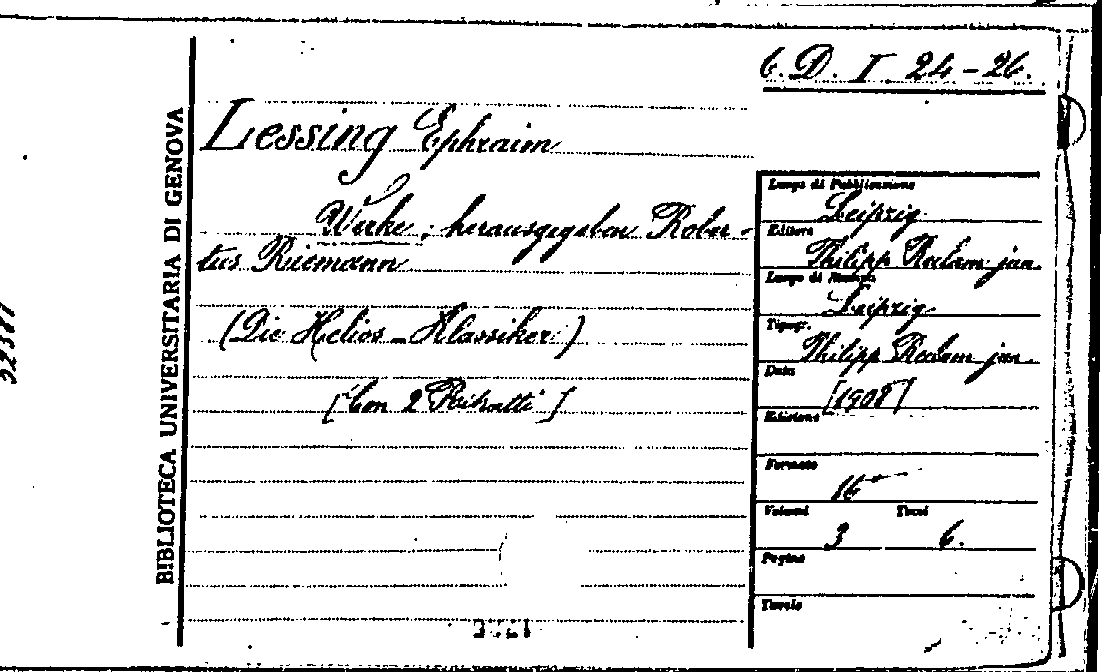 6. D. I 24-26.
BIBLIOTECA UNIVERSITARIA DI GENOVA
Lessing Ephraim
Werke; herausgegeben Rober-
tus Riemann
(Die Helios-Klassiker)
[Con 2 Ritratti]
Luogo di Pubblicazione
Leipzig
Editore
Philipp Reclam jun.
Luogo di Stampa
Leipzig
Tipogr.
Philipp Reclam jun.
Data
[1908]
Edizione
Formato
16°
Volumi Tomi
3 6.
Pagine
Tavole